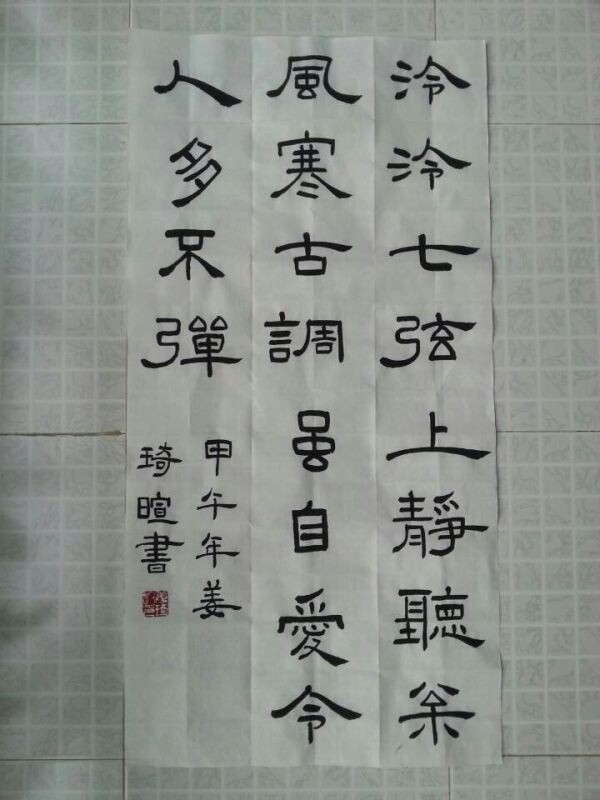 泠泠七弦上靜聽枀
風寒古調虽自愛今
人多不彈
甲午年姜
琦暄書